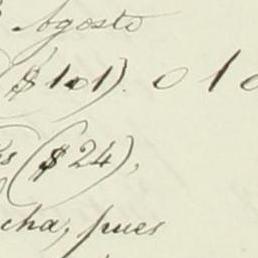 Agosto
($101). 010
($24),
cha, pues